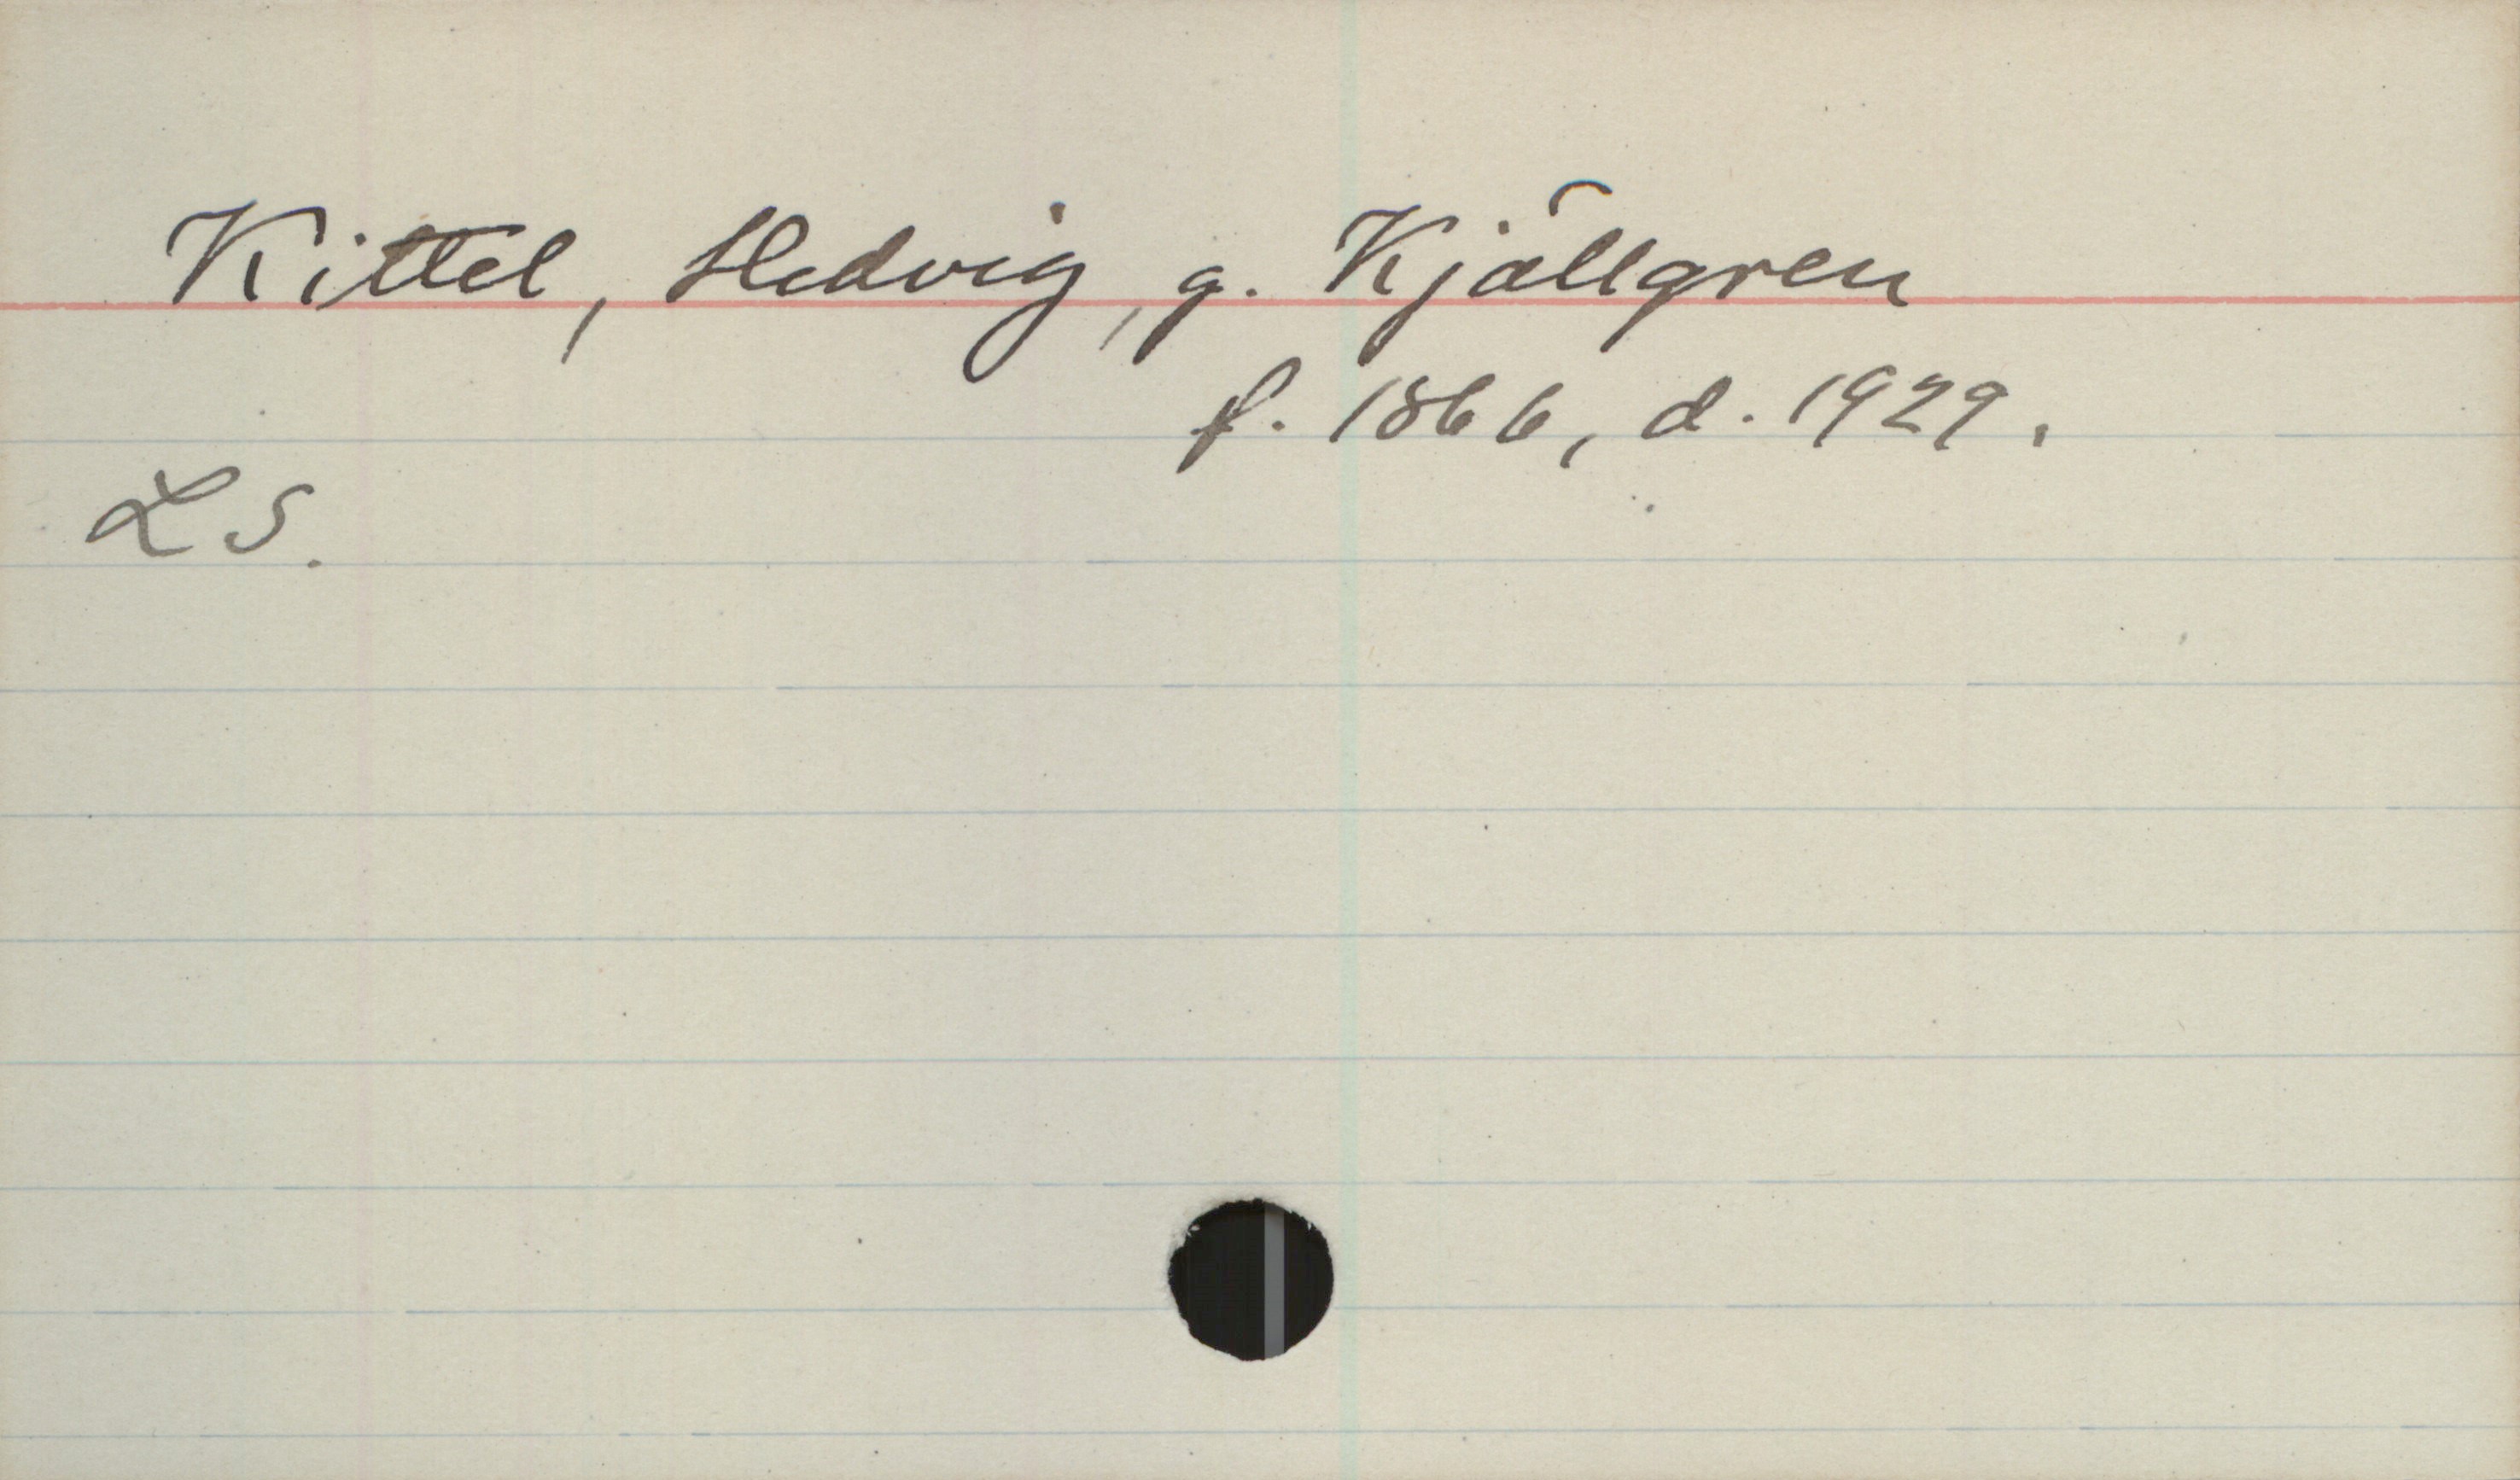 Kittel, Hedvig, g. Kjällgren
f. 1866, d. 1929.
LS.